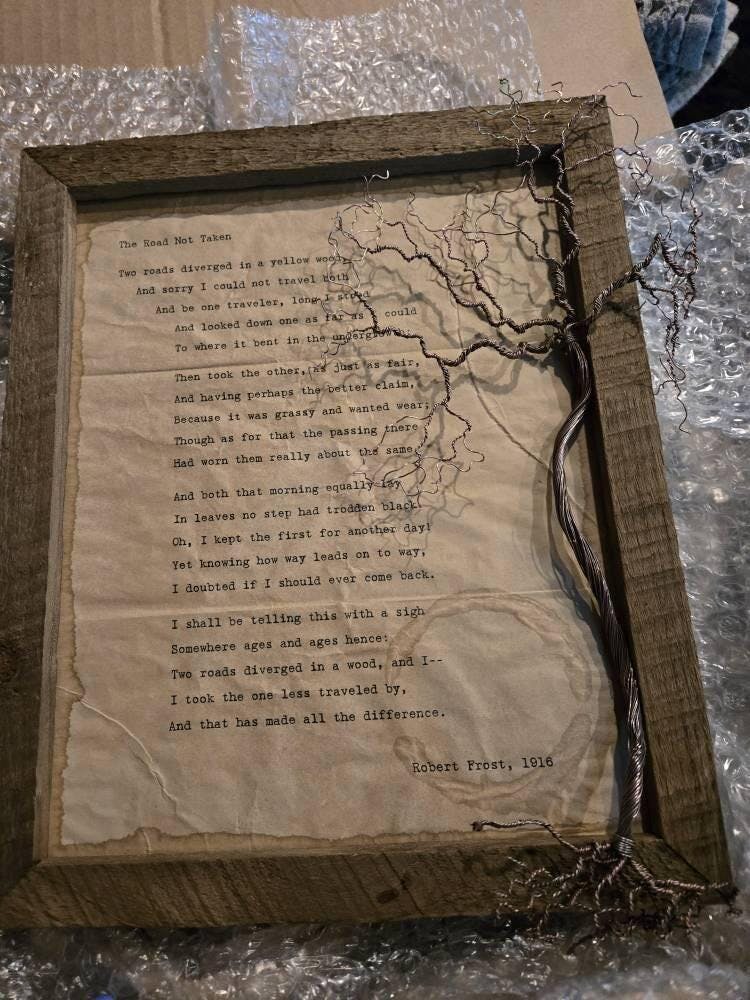 The Road Not Taken
Two roads diverged in a yellow wood,
And sorry I could not travel both
And be one traveler, long I stood
And looked down one as far as I could
To where it bent in the undergrowth;
Then took the other, as just as fair,
And having perhaps the better claim,
Because it was grassy and wanted wear;
Though as for that the passing there
Had worn them really about the same,
And both that morning equally lay
In leaves no step had trodden black.
Oh, I kept the first for another day!
Yet knowing how way leads on to way,
I doubted if I should ever come back.
I shall be telling this with a sigh
Somewhere ages and ages hence:
Two roads diverged in a wood, and I--
I took the one less traveled by,
And that has made all the difference.
Robert Frost, 1916